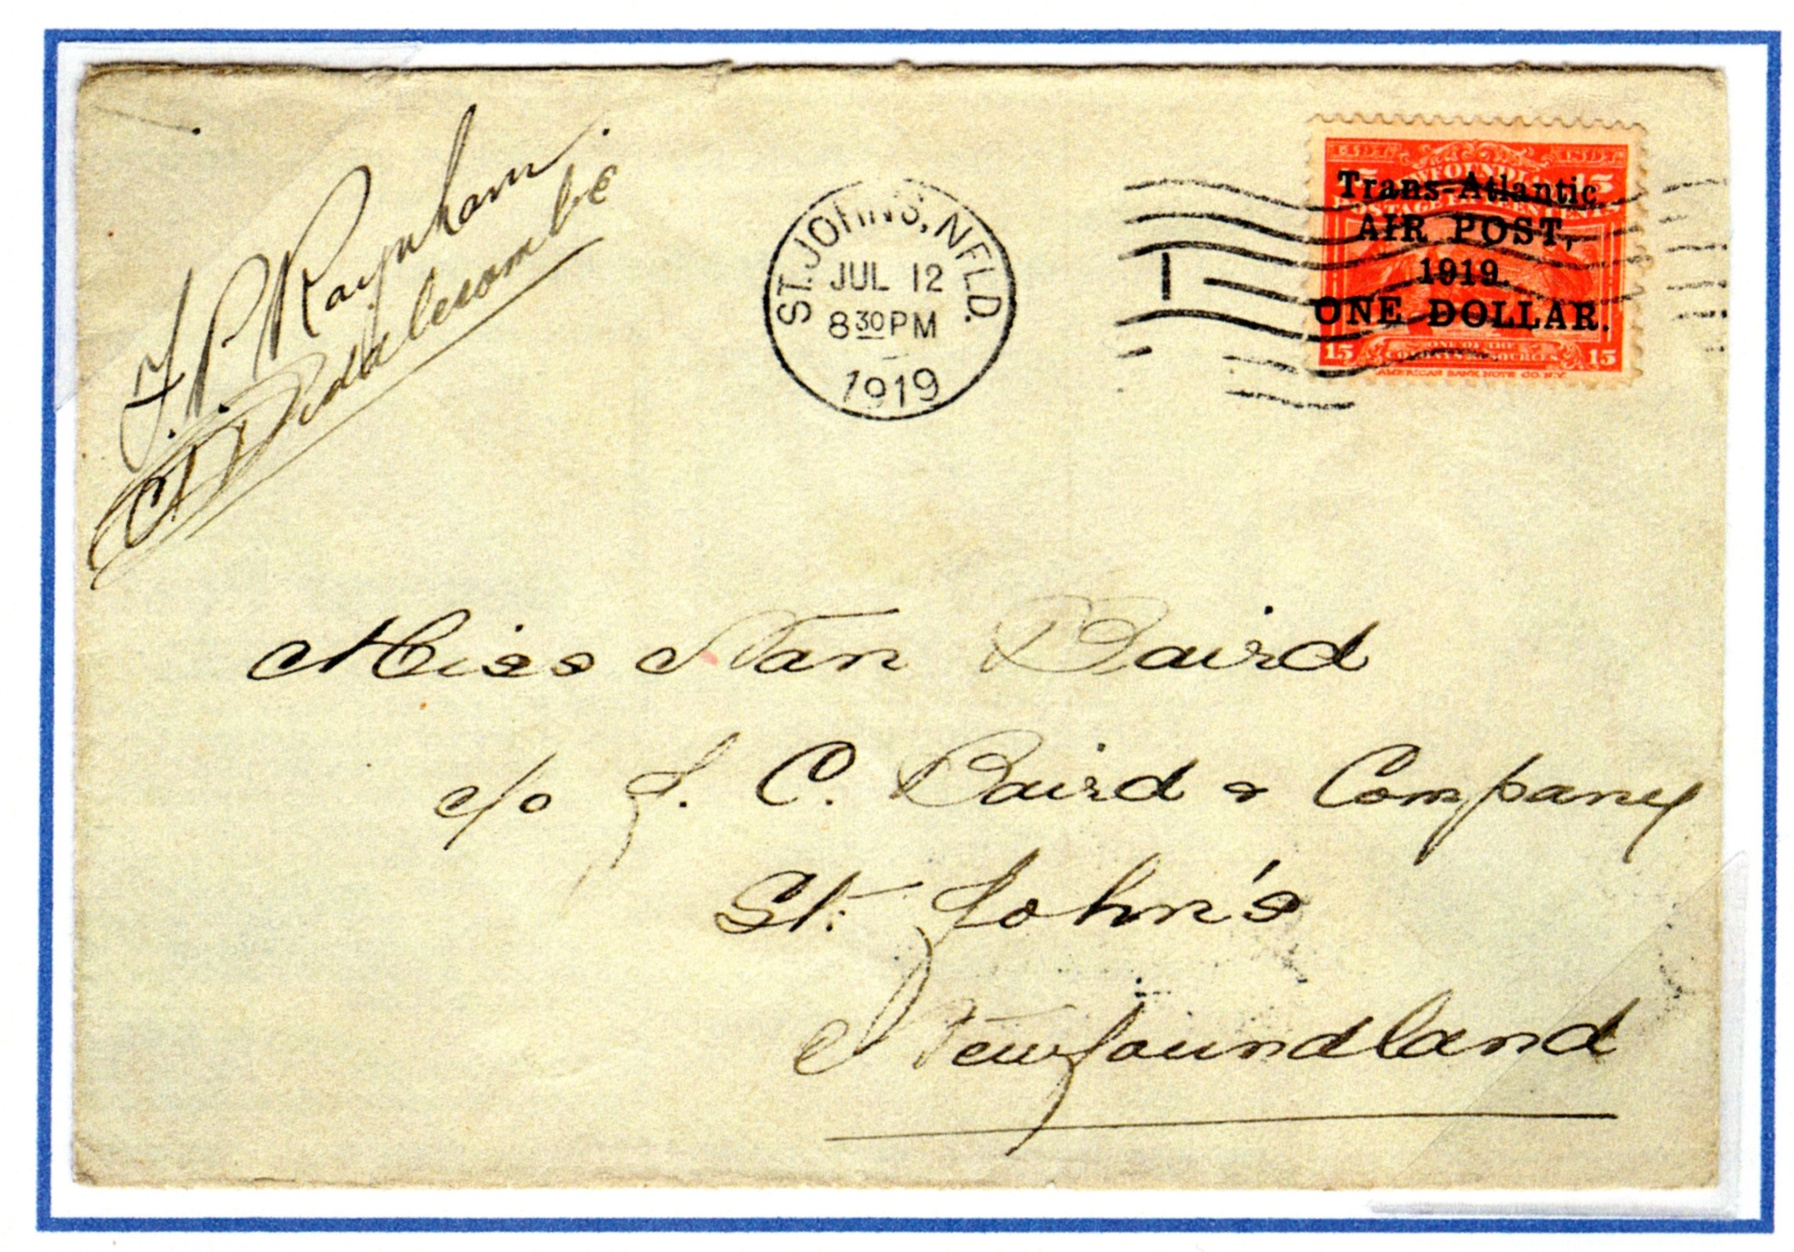 F. P. Raynham
C H Biddlecombe
ST. JOHN'S, NFLD.
JUL 12
8 30 PM
1919
1
15 15
Trans-Atlantic
AIR POST,
1919.
ONE DOLLAR.
15 15
AMERICAN BANK NOTE CO. N.Y.
Miss Nan Baird
c/o J. C. Baird & Company
St. John's
Newfoundland